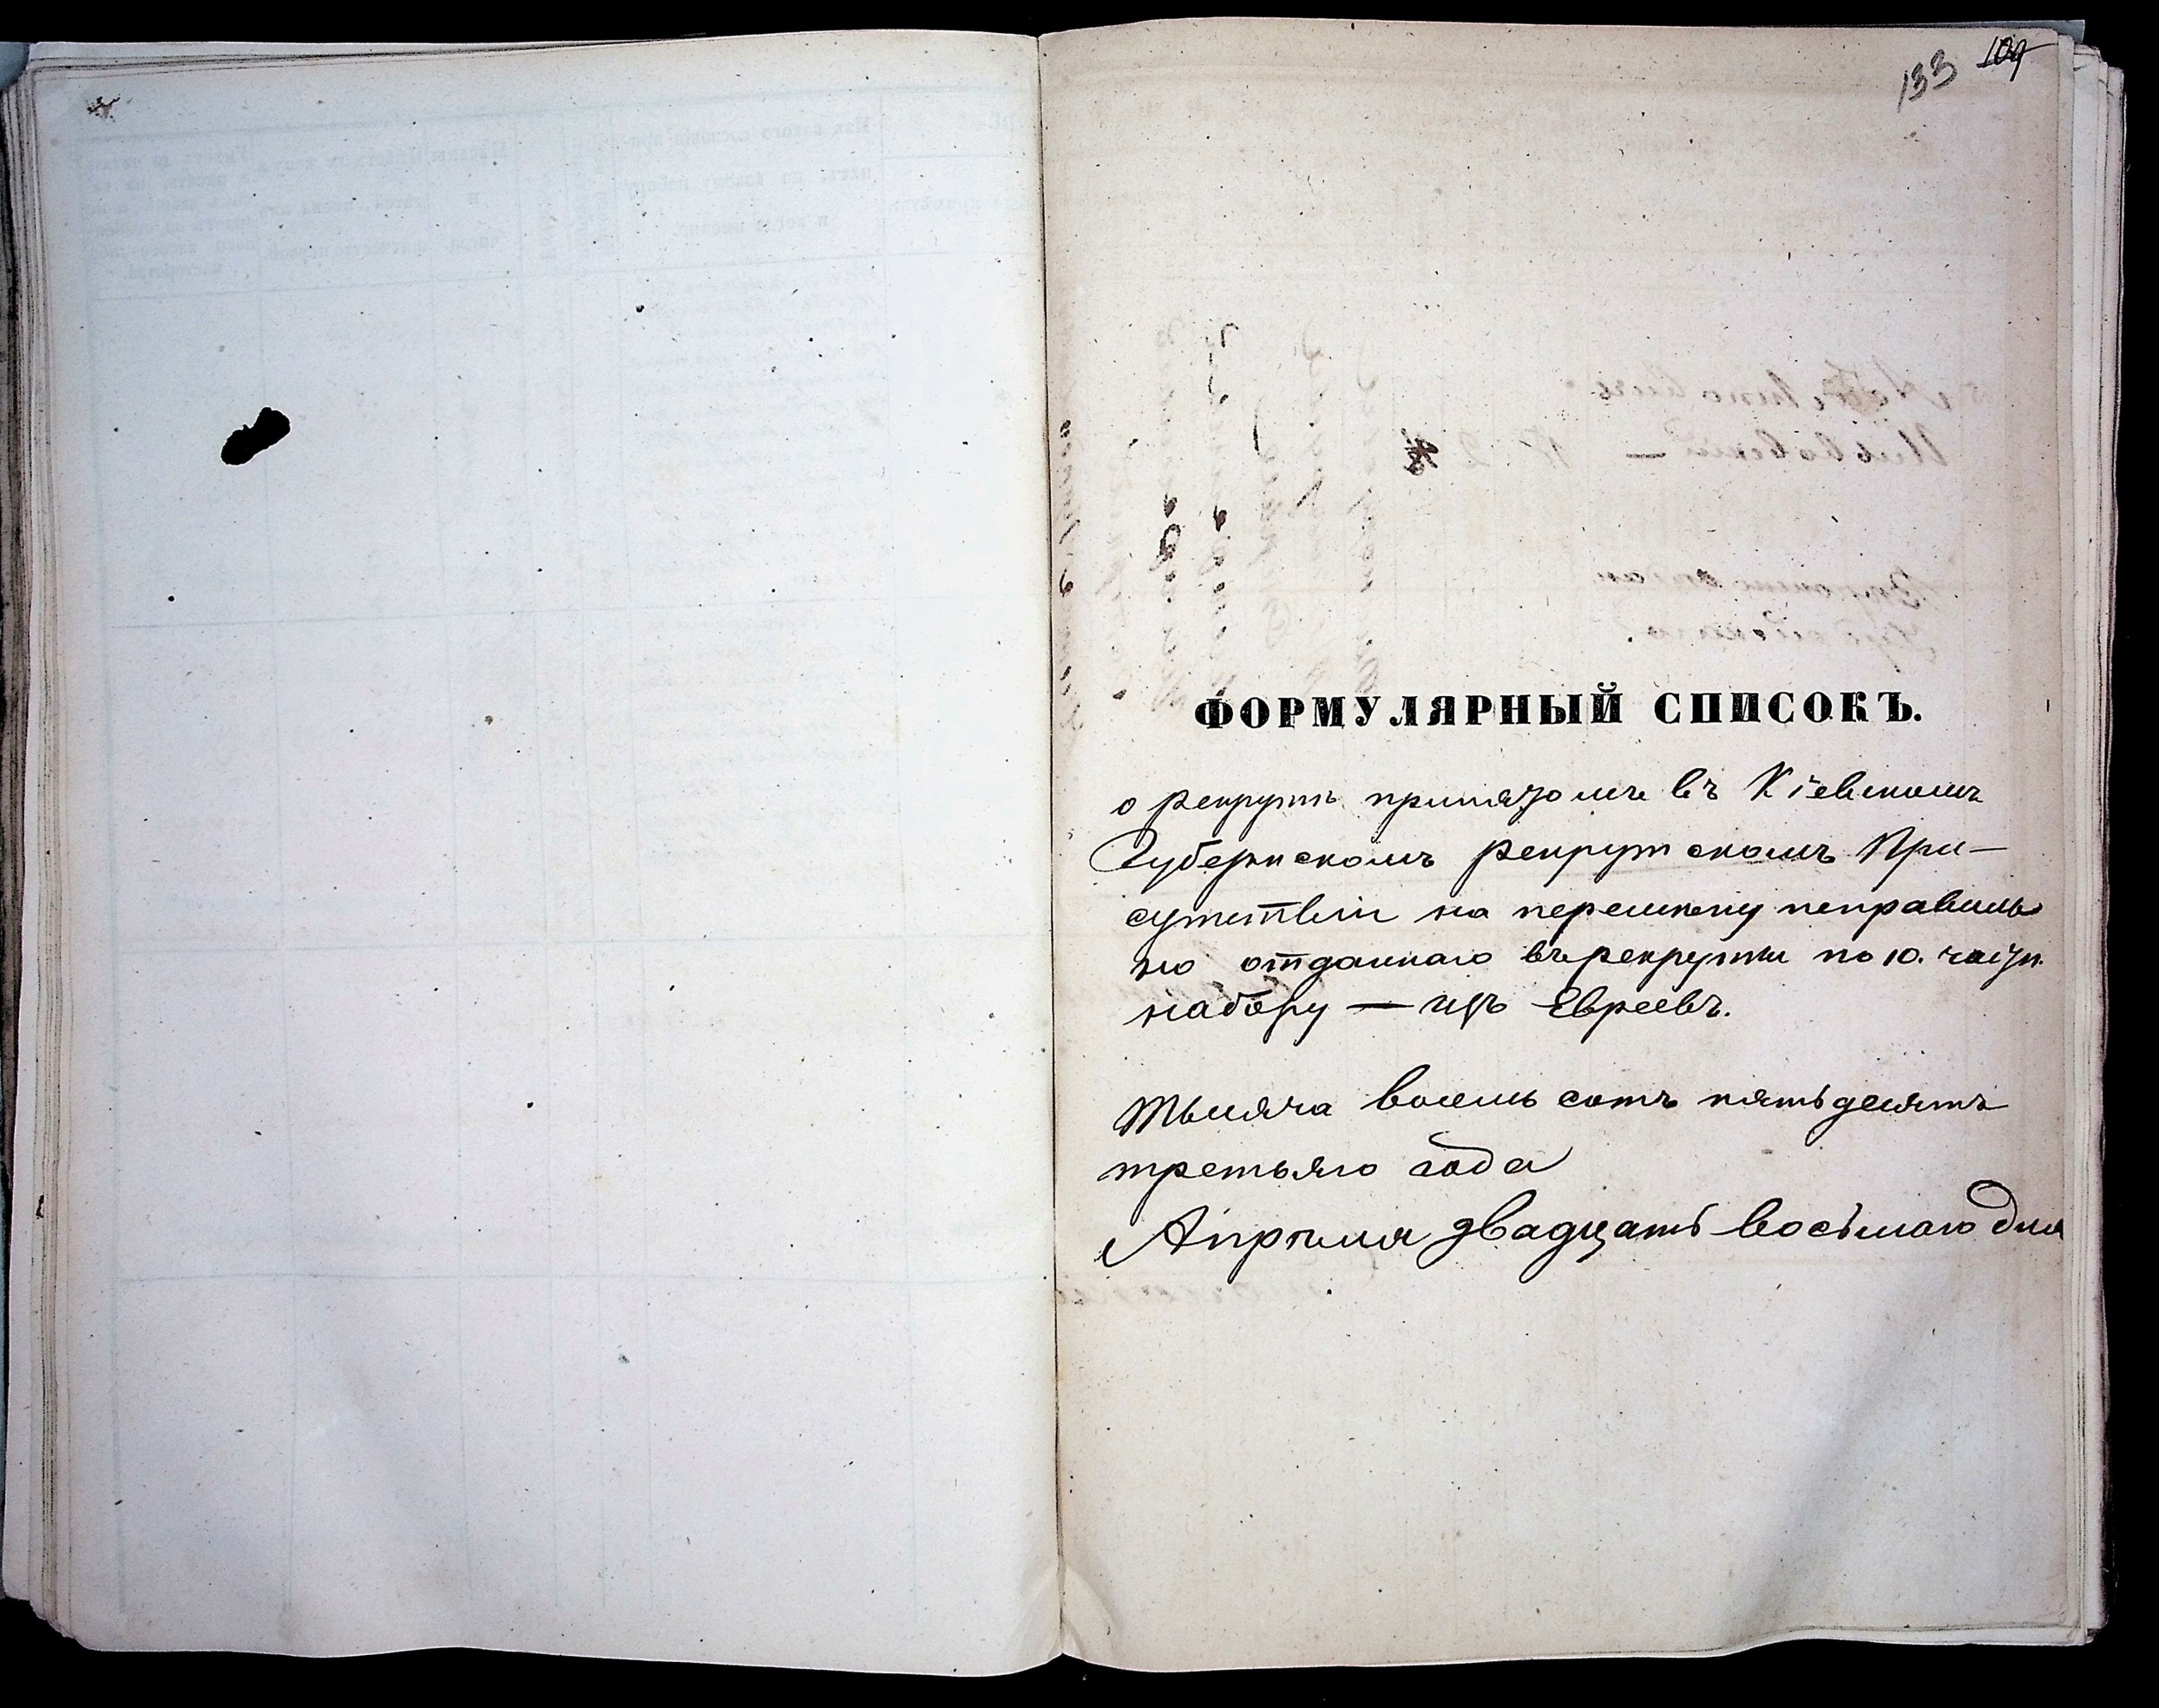 133 109
ФОРМУЛЯРНЫЙ СПИСОКЪ.
о рекрутѣ принятомъ въ Кіевскомъ
Губернскомъ рекрутскомъ При-
сутствіи на перемѣну неправиль
но отданнаго въ рекруты по 10. част.
набору — изъ Евреевъ.
Тысяча восемь сотъ пятьдесятъ
третьяго года
Апрѣля двадцать восьмаго дня